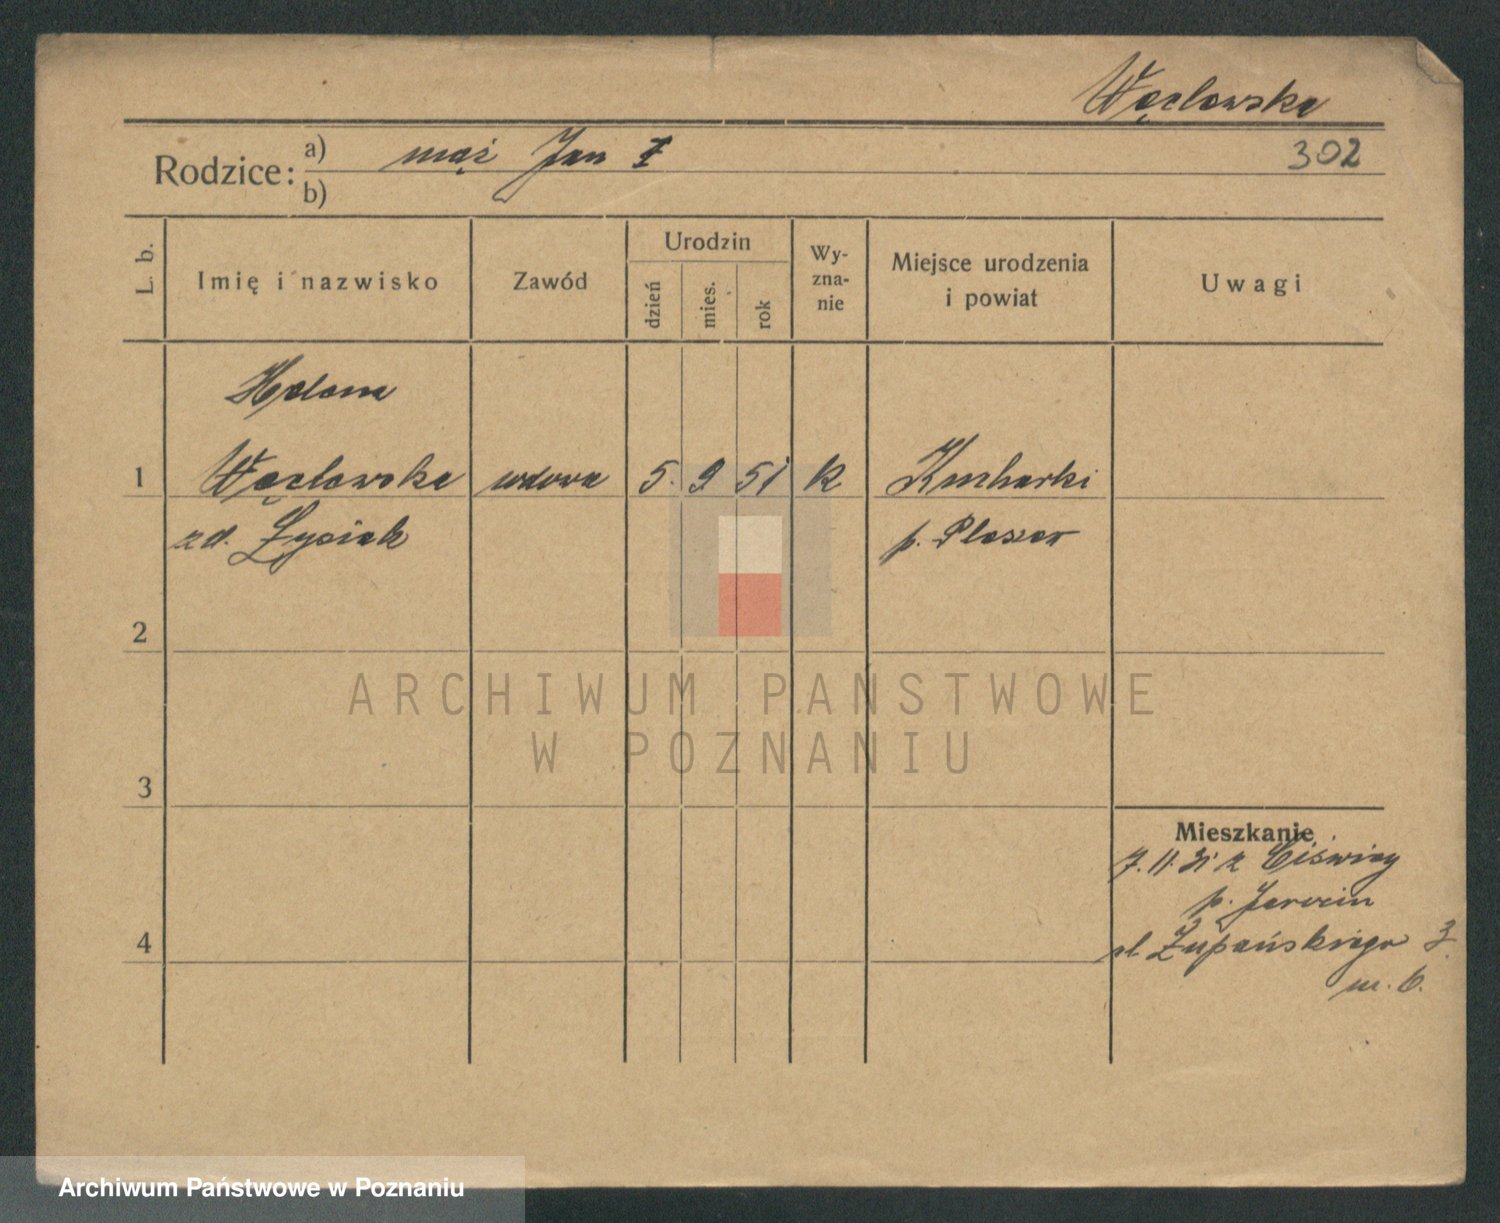 Węcławska
302
Rodzice: a) mąż Jan †
b)
L. b.
Imię i nazwisko
Zawód
Urodzin
dzień
mies.
rok
Wy-
zna-
nie
Miejsce urodzenia
i powiat
Uwagi
Helena
1 Węcławska wdowa 5. 9 51 k Kucharki
zd. Łysiak p. Pleszew
2
3
4
Mieszkanie
7.11.31 z Ciświcy
p. Jarocin
ul Żupańskiego 3.
m. 6.
ARCHIWUM PAŃSTWOWE
W POZNANIU
Archiwum Państwowe w Poznaniu